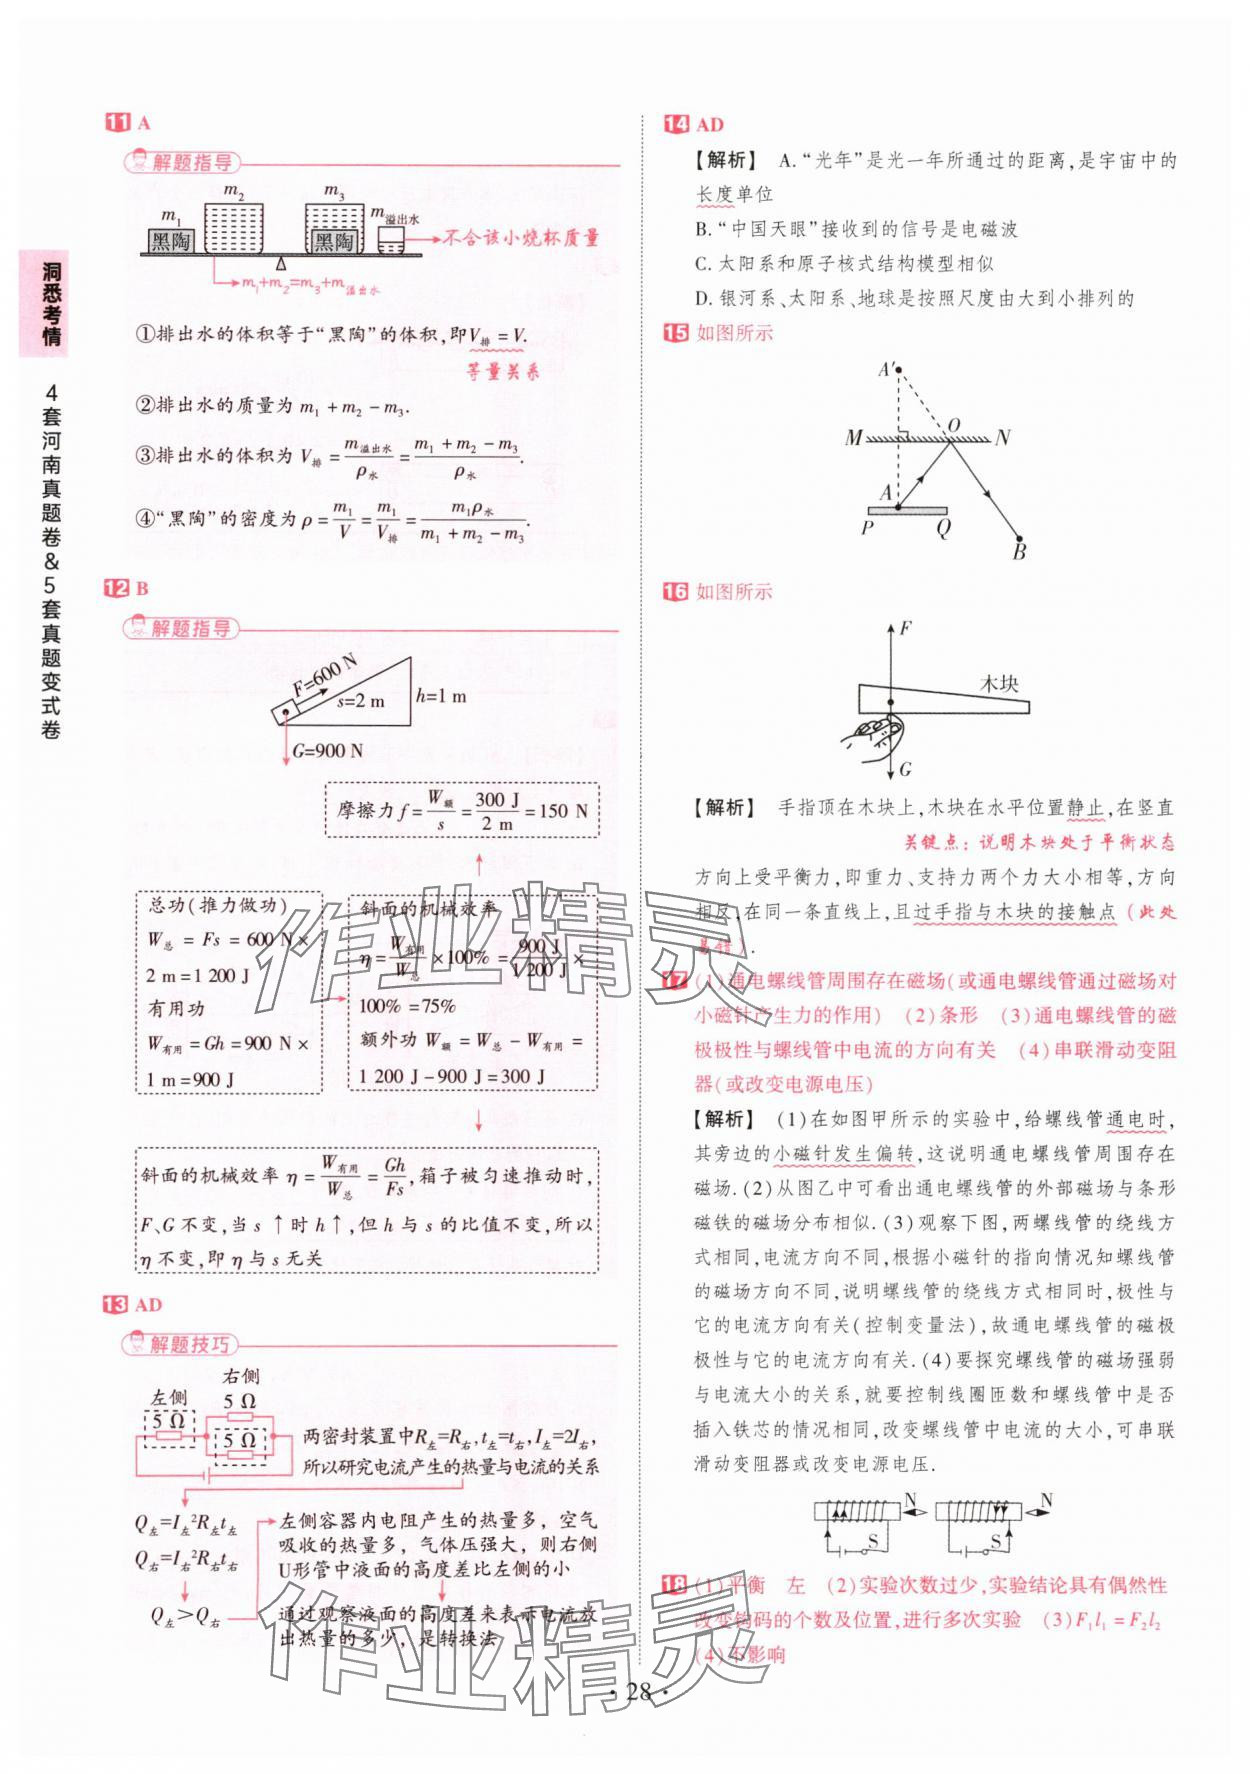 洞悉考情
4套河南真题卷&5套真题变式卷
11 A
解题指导
m₁ 黑陶 m₂ m₃ 黑陶 m溢出水 不含该小烧杯质量
m₁+m₂=m₃+m溢出水
①排出水的体积等于“黑陶”的体积,即V排=V.
等量关系
②排出水的质量为 m₁+m₂-m₃.
③排出水的体积为 V排=m溢出水/ρ水=(m₁+m₂-m₃)/ρ水.
④“黑陶”的密度为ρ=m₁/V=m₁/V排=m₁ρ水/(m₁+m₂-m₃).
12 B
解题指导
F=600 N
s=2 m h=1 m
G=900 N
摩擦力 f=W额/s=300 J/2 m=150 N
总功(推力做功)
W总=Fs=600 N×
2 m=1 200 J
有用功
W有用=Gh=900 N×
1 m=900 J
斜面的机械效率
η=W有用/W总×100%=900 J/1 200 J×
100%=75%
额外功 W额=W总-W有用=
1 200 J-900 J=300 J
斜面的机械效率 η=W有用/W总=Gh/Fs,箱子被匀速推动时,
F、G不变,当s↑时h↑,但h与s的比值不变,所以
η不变,即η与s无关
13 AD
解题技巧
左侧 5 Ω 右侧 5 Ω 5 Ω
两密封装置中R左=R右,t左=t右,I左=2I右,
所以研究电流产生的热量与电流的关系
Q左=I左²R左t左
Q右=I右²R右t右
Q左>Q右
左侧容器内电阻产生的热量多，空气
吸收的热量多，气体压强大，则右侧
U形管中液面的高度差比左侧的小
通过观察液面的高度差来表示电流放
出热量的多少，是转换法
14 AD
【解析】 A.“光年”是光一年所通过的距离,是宇宙中的
长度单位
B.“中国天眼”接收到的信号是电磁波
C.太阳系和原子核式结构模型相似
D.银河系、太阳系、地球是按照尺度由大到小排列的
15 如图所示
A′
M O N
A
P Q B
16 如图所示
F
木块
G
【解析】 手指顶在木块上,木块在水平位置静止,在竖直
关键点：说明木块处于平衡状态
方向上受平衡力,即重力、支持力两个力大小相等,方向
相反,在同一条直线上,且过手指与木块的接触点(此处
易错).
17 (1)通电螺线管周围存在磁场(或通电螺线管通过磁场对
小磁针产生力的作用) (2)条形 (3)通电螺线管的磁
极极性与螺线管中电流的方向有关 (4)串联滑动变阻
器(或改变电源电压)
【解析】 (1)在如图甲所示的实验中,给螺线管通电时,
其旁边的小磁针发生偏转,这说明通电螺线管周围存在
磁场.(2)从图乙中可看出通电螺线管的外部磁场与条形
磁铁的磁场分布相似.(3)观察下图,两螺线管的绕线方
式相同,电流方向不同,根据小磁针的指向情况知螺线管
的磁场方向不同,说明螺线管的绕线方式相同时,极性与
它的电流方向有关(控制变量法),故通电螺线管的磁极
极性与它的电流方向有关.(4)要探究螺线管的磁场强弱
与电流大小的关系,就要控制线圈匝数和螺线管中是否
插入铁芯的情况相同,改变螺线管中电流的大小,可串联
滑动变阻器或改变电源电压.
N S N S
18 (1)平衡 左 (2)实验次数过少,实验结论具有偶然性
改变钩码的个数及位置,进行多次实验 (3)F₁l₁=F₂l₂
(4)不影响
作业精灵
作业精灵
·28·